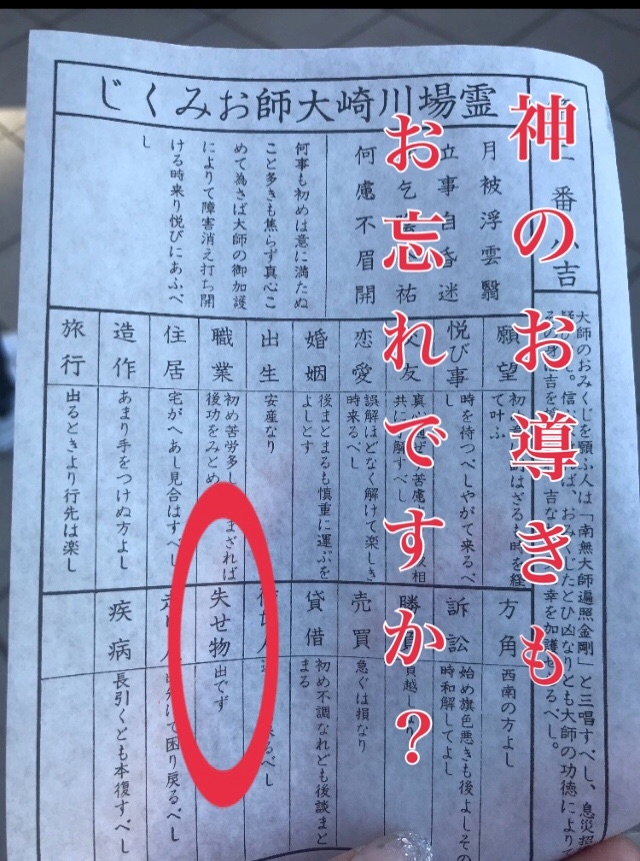 神のお導きも
お忘れですか？
霊場川崎大師おみくじ
一番小吉
大師のおみくじを願ふ人は「南無大師遍照金剛」と三唱すべし、息災招
おみくじたとひ凶なりとも大師の功徳により
幸を加護せらるべし。
月被浮雲翳
立事自昏迷
乞 祐
何慮不眉開
何事も初めは意に満たぬ
こと多きも焦らず真心こ
めて為さば大師の御加護
によりて障害消え打ち開
ける時来り悦びにあふべ
し
願望
時を経
て叶ふ
悦び事
時を待つべしやがて来るべ
し
交友
共に 解すべし
恋愛
誤解ほどなく解けて楽しき
時来るべし
婚姻
後まとまるも慎重に運ぶを
よしとす
出生
安産なり
職業
初め苦労多し まざれば
後功をみとめ
住居
宅がへあし見合はすべし
造作
あまり手をつけぬ方よし
旅行
出るときより行先は楽し
方角
西南の方よし
訴訟
始め旗色悪きも後よしその
時和解してよし
勝負
負越しなり
売買
急ぐは損なり
貸借
初め不調なれども後談まと
まる
人
来るべし
失せ物
出でず
人
て困り戻るべし
疾病
長引くとも本復すべし